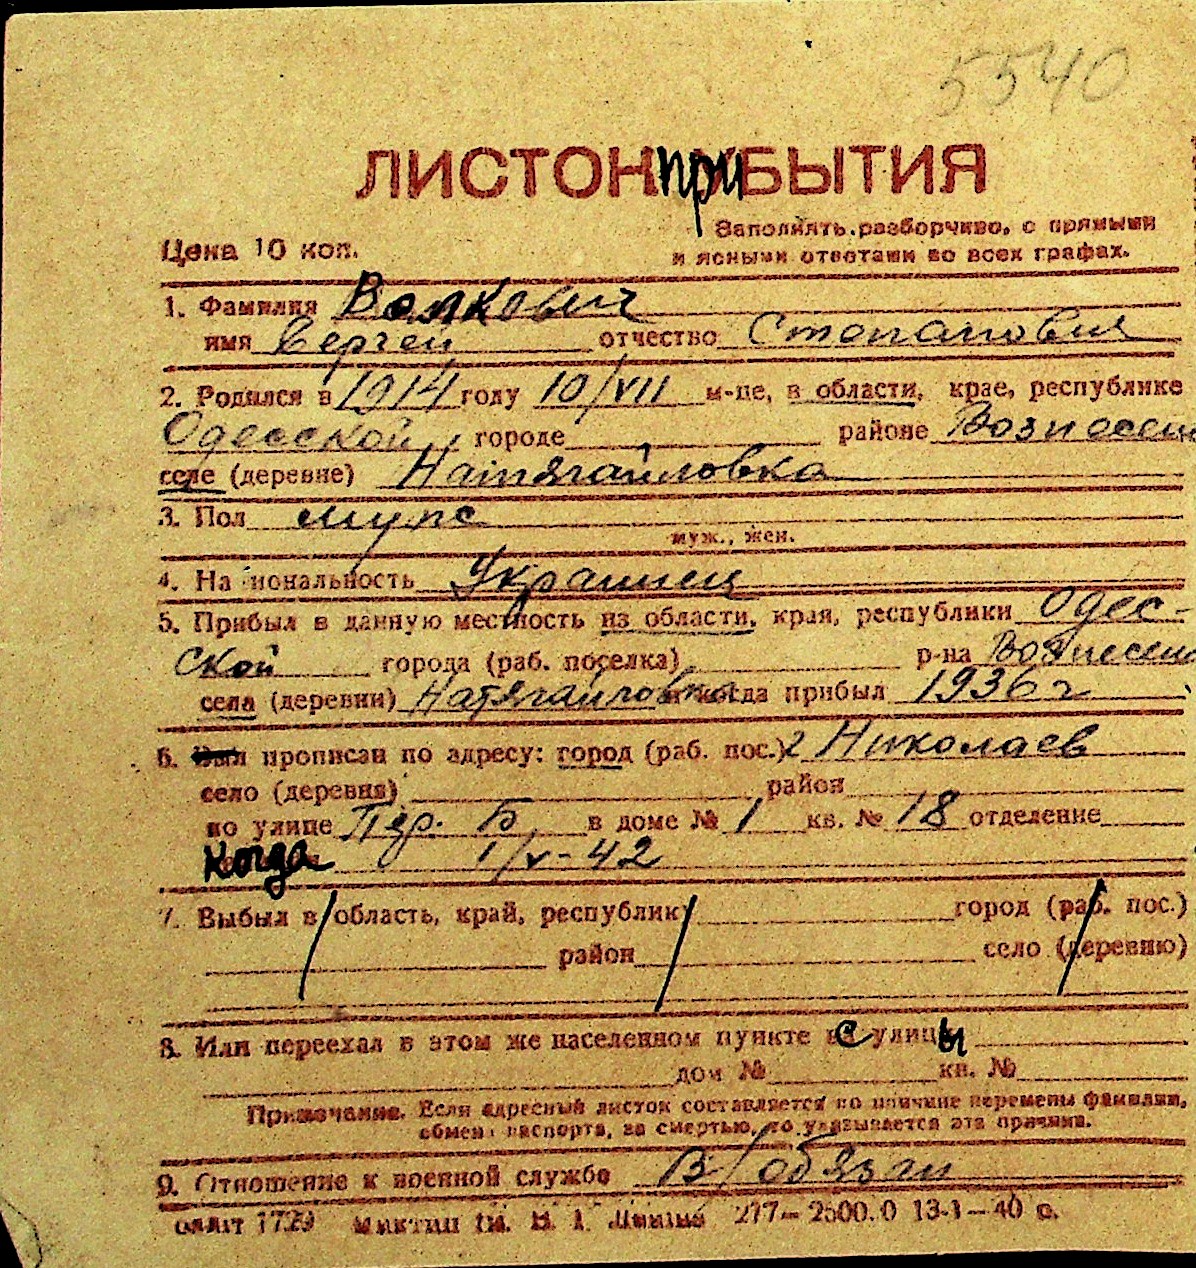 5540
ЛИСТОК прибЫТИЯ
Цена 10 коп.
Заполнять разборчиво, с прямыми
и ясными ответами во всех графах.
1. Фамилия Волкович
имя Сергей отчество Степанович
2. Родился в 1914 году 10/VII м-це, в области, крае, республике
Одесской городе районе Вознесен
селе (деревне) Натягайловка
3. Пол мужс
муж., жен.
4. Национальность Украинец
5. Прибыл в данную местность из области, края, республики Одес-
ской города (раб. поселка) р-на Вознесен
села (деревни) Натягайловка и когда прибыл 1936 г
6. Был прописан по адресу: город (раб. пос.) г Николаев
село (деревня) район
по улице Пер. Б в доме № 1 кв. № 18 отделение
Когда 1/V-42
7. Выбыл в область, край, республику город (раб. пос.)
район село (деревню)
8. Или переехал в этом же населенном пункте с улицы
дом № кв. №
Примечание. Если адресный листок составляется по причине перемены фамилии,
обмен паспорта, за смертью, то указывается эта причина.
9. Отношение к военной службе В/обязан
1729 277—2500.0 13-1—40 г.